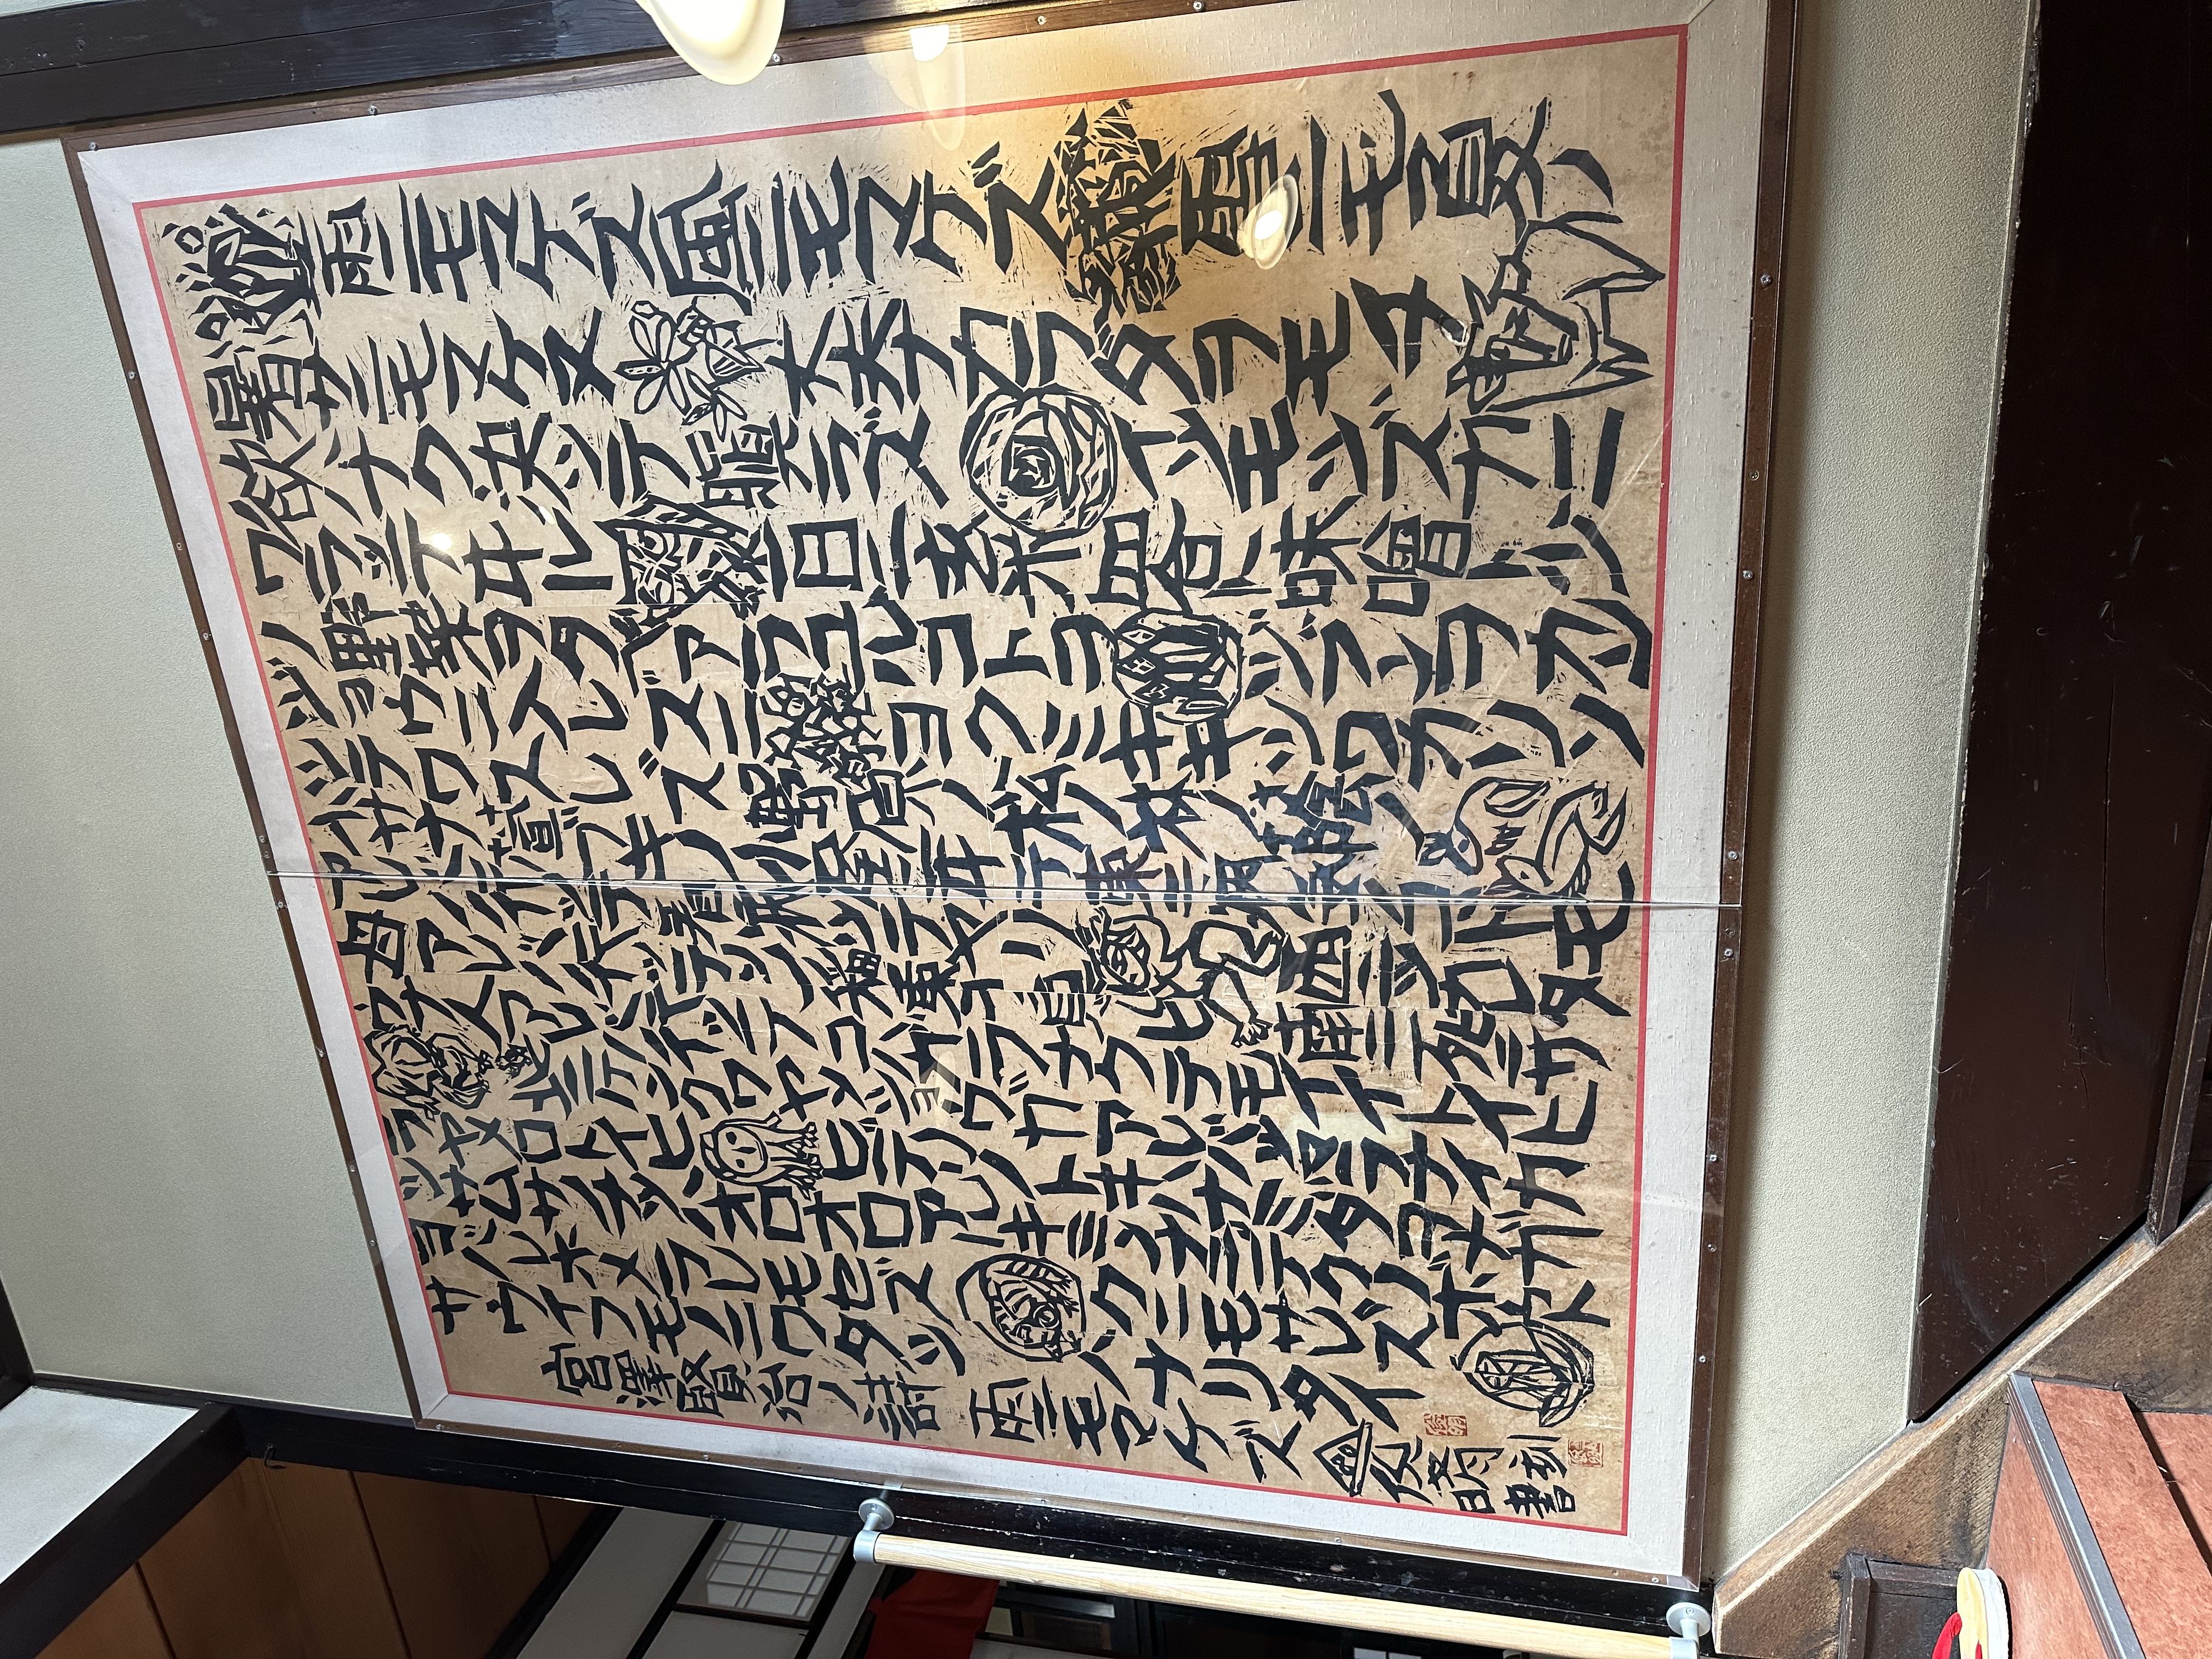 雨ニモマケズ風ニモマケズ雪ニモ夏ノ
暑サニモマケヌ丈夫ナカラダヲモチ
欲ハナク決ッテ瞋ラズイツモシズカニ
ワラッテヰル一日ニ玄米四合ト味噌ト少シ
ノ野菜ヲタベアラユルコトヲジブンヲカン
ジョウニ入レズニヨクミキキシワカリソ
シテワスレズ野原ノ松ノ林ノ蔭
ノ小サナ萱ブキノ小屋ニヰテ東ニ病気ノコドモ
アレバ行ッテ看病シテヤリ西ニツカレタ
母アレバ行ッテソノ稲ノ束ヲ負ヒ南ニ死ニサ
ウナ人アレバ行ッテコハガラナクテモイイトイヒ
北ニケンクヮヤソショウガアレバツマラナイカ
ラヤメロトイヒヒデリノトキハナミダヲナガ
シサムサノナツハオロオロアルキミンナニデクノボウト
ヨバレホメラレモセズクニモサレズ
サウイフモノニワタシハナリタイ
宮澤賢治ノ詩 雨ニモマケズ
俊明刻
書